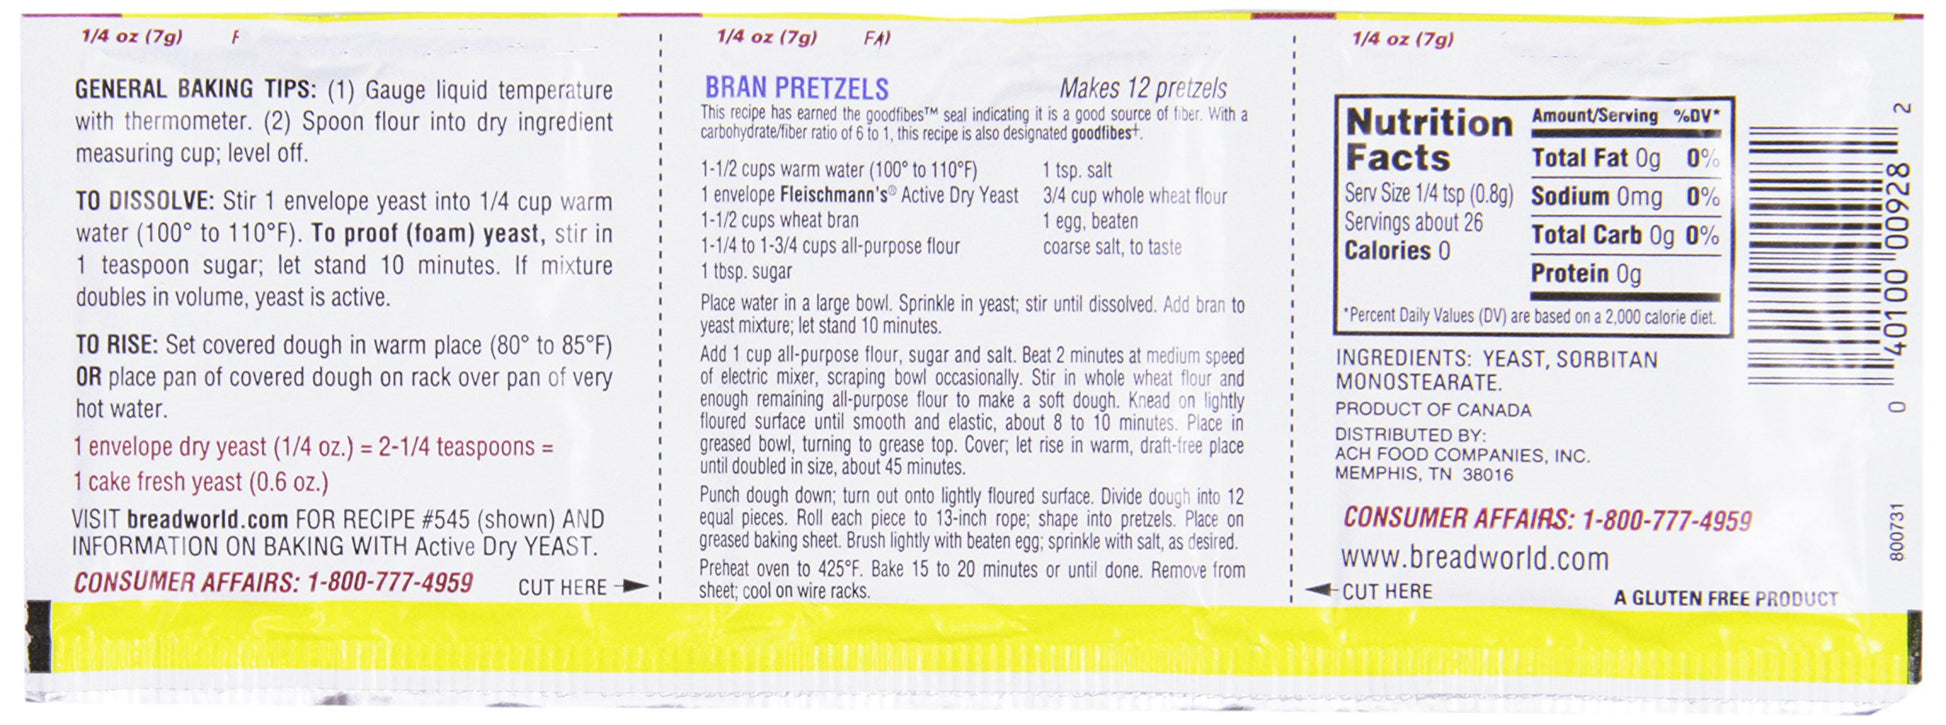 1/4 oz (7g) F
GENERAL BAKING TIPS: (1) Gauge liquid temperature
with thermometer. (2) Spoon flour into dry ingredient
measuring cup; level off.
TO DISSOLVE: Stir 1 envelope yeast into 1/4 cup warm
water (100° to 110°F). To proof (foam) yeast, stir in
1 teaspoon sugar; let stand 10 minutes. If mixture
doubles in volume, yeast is active.
TO RISE: Set covered dough in warm place (80° to 85°F)
OR place pan of covered dough on rack over pan of very
hot water.
1 envelope dry yeast (1/4 oz.) = 2-1/4 teaspoons =
1 cake fresh yeast (0.6 oz.)
VISIT breadworld.com FOR RECIPE #545 (shown) AND
INFORMATION ON BAKING WITH Active Dry YEAST.
CONSUMER AFFAIRS: 1-800-777-4959
CUT HERE
1/4 oz (7g)
BRAN PRETZELS Makes 12 pretzels
This recipe has earned the goodfibes™ seal indicating it is a good source of fiber. With a
carbohydrate/fiber ratio of 6 to 1, this recipe is also designated goodfibes+.
1-1/2 cups warm water (100° to 110°F)
1 envelope Fleischmann's® Active Dry Yeast
1-1/2 cups wheat bran
1-1/4 to 1-3/4 cups all-purpose flour
1 tbsp. sugar
1 tsp. salt
3/4 cup whole wheat flour
1 egg, beaten
coarse salt, to taste
Place water in a large bowl. Sprinkle in yeast; stir until dissolved. Add bran to
yeast mixture; let stand 10 minutes.
Add 1 cup all-purpose flour, sugar and salt. Beat 2 minutes at medium speed
of electric mixer, scraping bowl occasionally. Stir in whole wheat flour and
enough remaining all-purpose flour to make a soft dough. Knead on lightly
floured surface until smooth and elastic, about 8 to 10 minutes. Place in
greased bowl, turning to grease top. Cover; let rise in warm, draft-free place
until doubled in size, about 45 minutes.
Punch dough down; turn out onto lightly floured surface. Divide dough into 12
equal pieces. Roll each piece to 13-inch rope; shape into pretzels. Place on
greased baking sheet. Brush lightly with beaten egg; sprinkle with salt, as desired.
Preheat oven to 425°F. Bake 15 to 20 minutes or until done. Remove from
sheet; cool on wire racks.
1/4 oz (7g)
Nutrition
Facts
Serv Size 1/4 tsp (0.8g)
Servings about 26
Calories 0
Amount/Serving %DV*
Total Fat 0g 0%
Sodium 0mg 0%
Total Carb 0g 0%
Protein 0g
*Percent Daily Values (DV) are based on a 2,000 calorie diet.
INGREDIENTS: YEAST, SORBITAN
MONOSTEARATE.
PRODUCT OF CANADA
DISTRIBUTED BY:
ACH FOOD COMPANIES, INC.
MEMPHIS, TN 38016
CONSUMER AFFAIRS: 1-800-777-4959
www.breadworld.com
CUT HERE
A GLUTEN FREE PRODUCT
0 40100 00928 2
800731